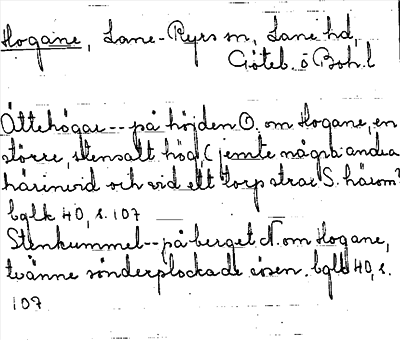 Hogane, Lane-Ryrs sn, Lane hd,
Göteb. o Boh. l
Ättehögar -- på höjden O. om Hogane, en
större, stensatt hög, (jemte några andra
härinvid och vid ett torp strax S. härom?
bglk 40, s. 107
Stenkummel -- på berget N. om Hogane,
tvänne sönderplockade rösen. bglk 40, s.
107